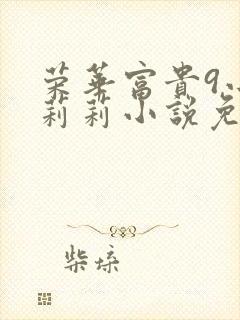 荣華富貴9
莉莉小說免
柴垛